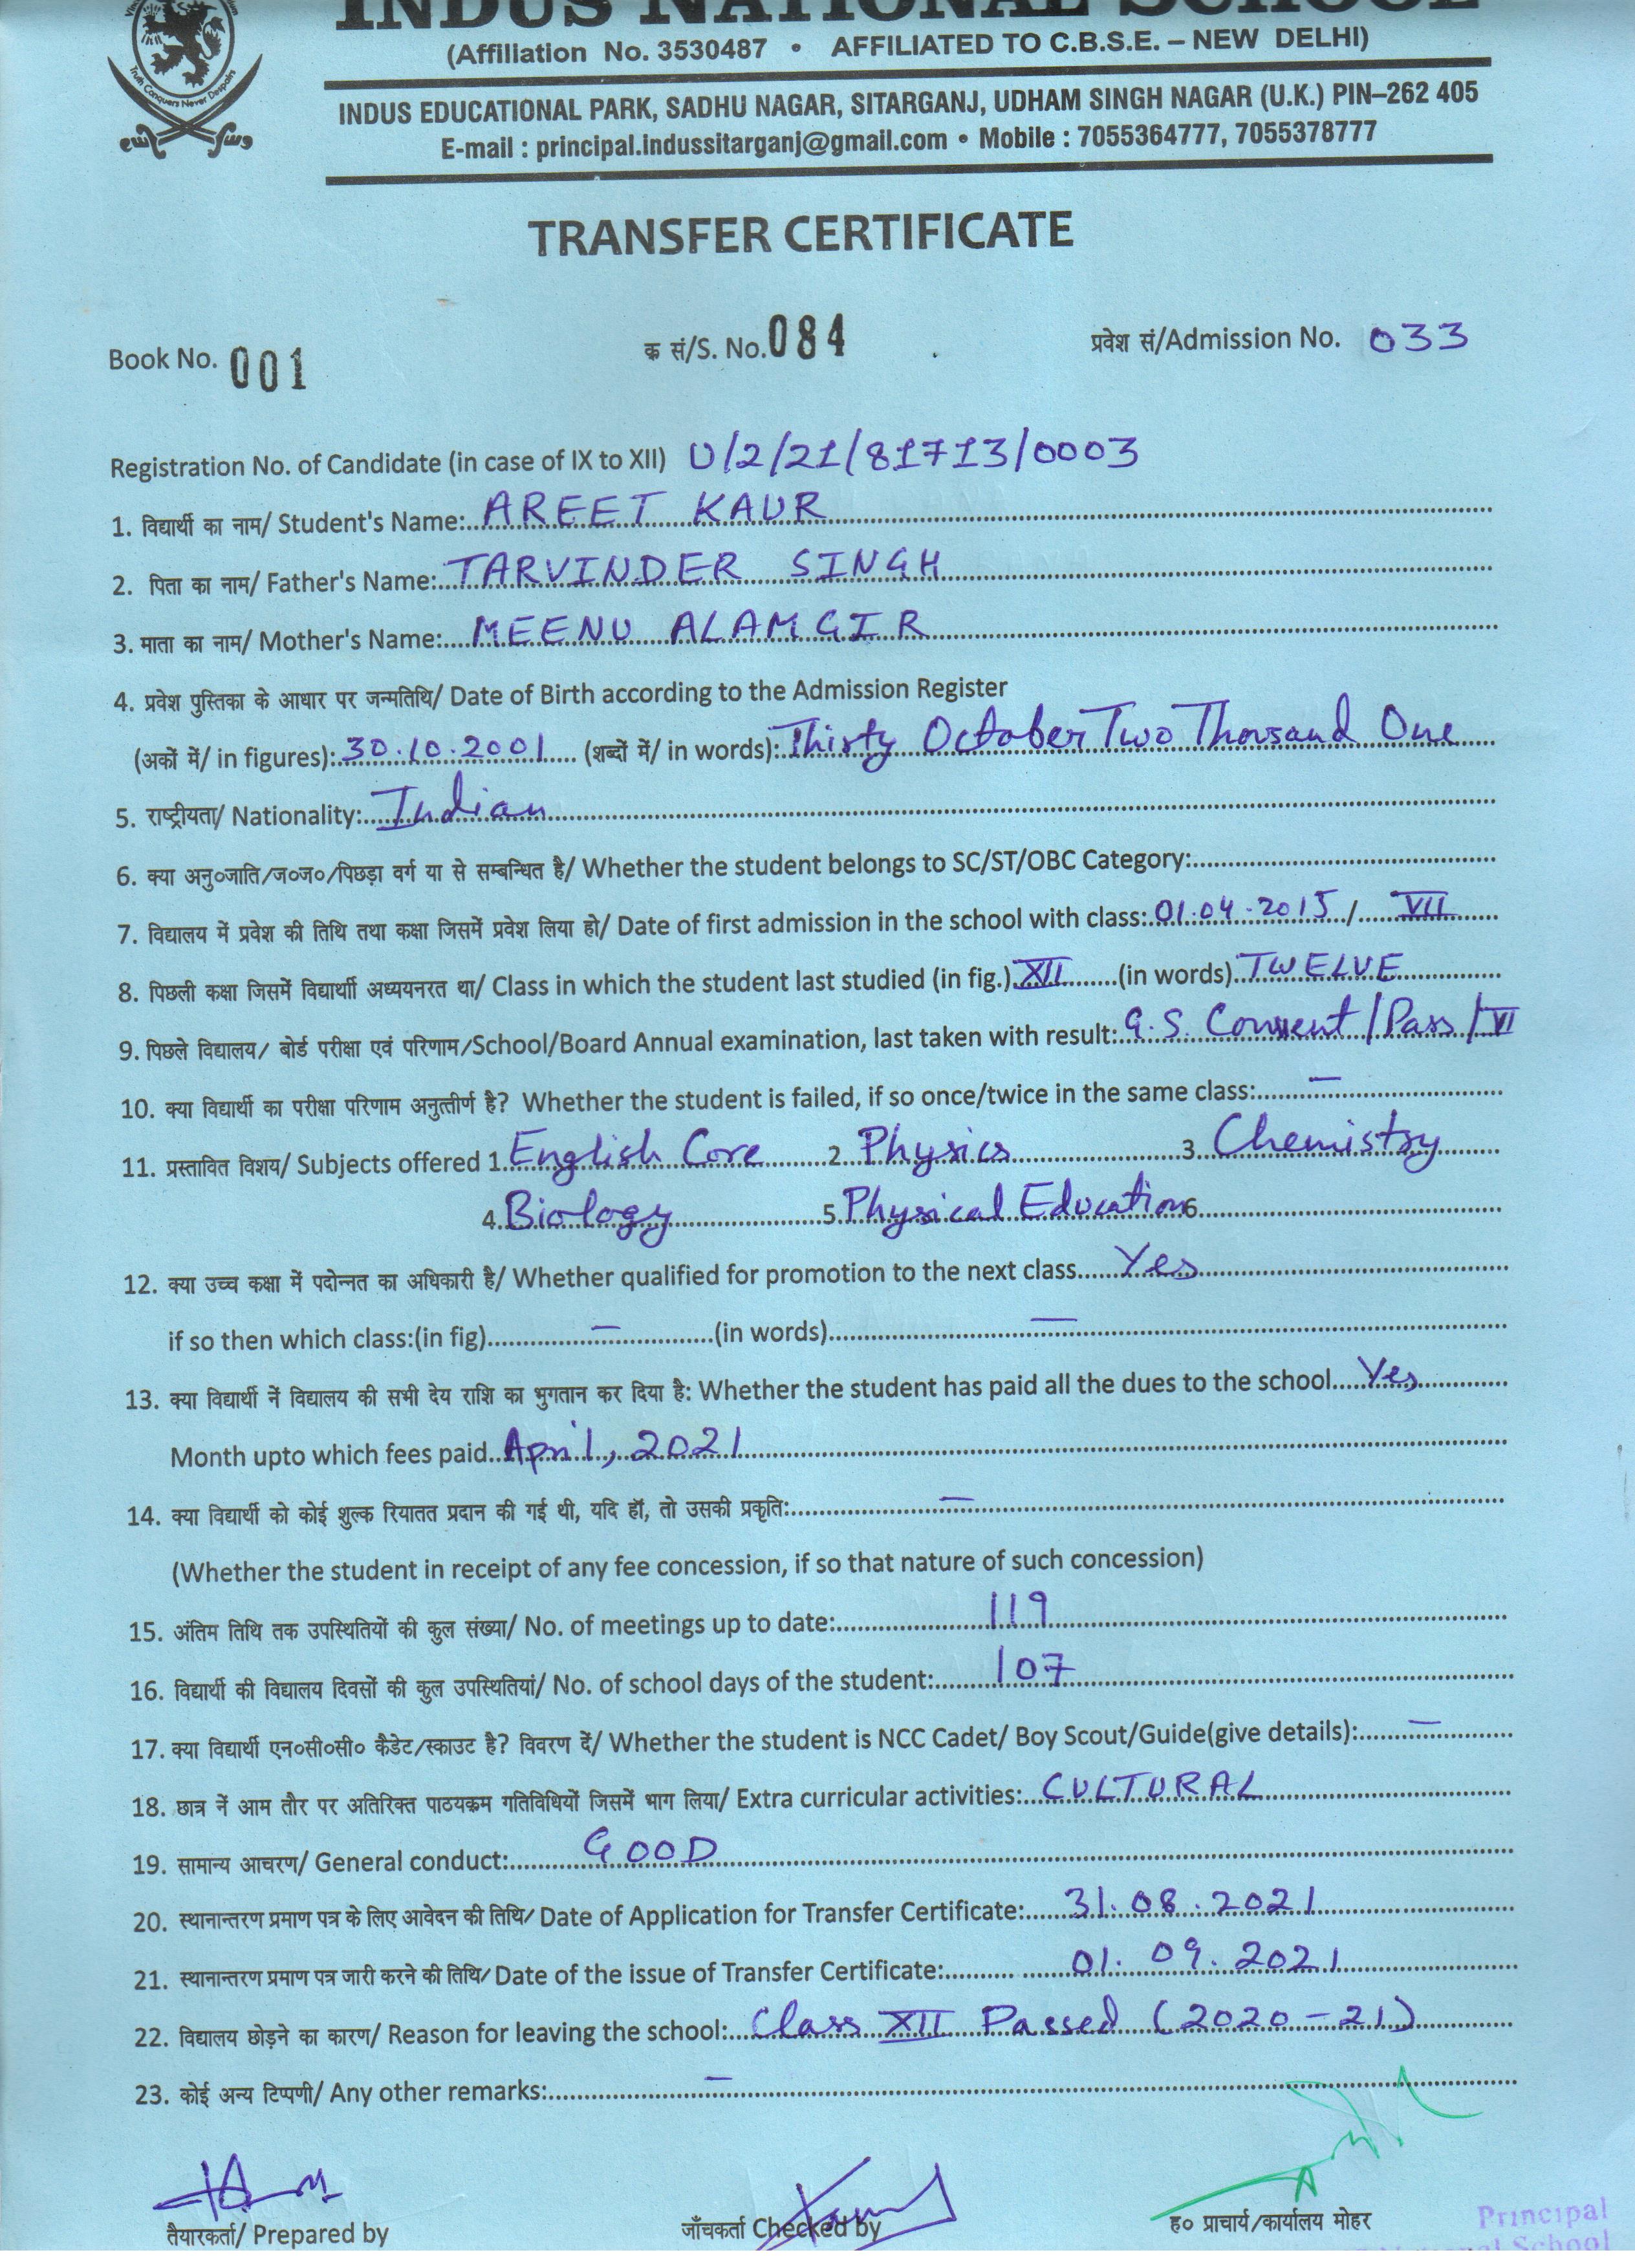 INDUS NATIONAL SCHOOL
(Affiliation No. 3530487 • AFFILIATED TO C.B.S.E. – NEW DELHI)
INDUS EDUCATIONAL PARK, SADHU NAGAR, SITARGANJ, UDHAM SINGH NAGAR (U.K.) PIN–262 405
E-mail : principal.indussitarganj@gmail.com • Mobile : 7055364777, 7055378777
Truth Conquers Never Despairs
TRANSFER CERTIFICATE
Book No. 001 क्र सं/S. No. 084 प्रवेश सं/Admission No. 033
Registration No. of Candidate (in case of IX to XII) U/2/21/81713/0003
1. विद्यार्थी का नाम/ Student's Name: AREET KAUR
2. पिता का नाम/ Father's Name: TARVINDER SINGH
3. माता का नाम/ Mother's Name: MEENU ALAMGIR
4. प्रवेश पुस्तिका के आधार पर जन्मतिथि/ Date of Birth according to the Admission Register
(अकों में/ in figures): 30.10.2001 (शब्दों में/ in words): Thirty October Two Thousand One
5. राष्ट्रीयता/ Nationality: Indian
6. क्या अनु०जाति/ज०ज०/पिछड़ा वर्ग या से सम्बन्धित है/ Whether the student belongs to SC/ST/OBC Category:
7. विद्यालय में प्रवेश की तिथि तथा कक्षा जिसमें प्रवेश लिया हो/ Date of first admission in the school with class: 01.04.2015 / VII
8. पिछली कक्षा जिसमें विद्यार्थी अध्ययनरत था/ Class in which the student last studied (in fig.) XII (in words) TWELVE
9. पिछले विद्यालय/ बोर्ड परीक्षा एवं परिणाम/School/Board Annual examination, last taken with result: G.S. Convent /Pass /VI
10. क्या विद्यार्थी का परीक्षा परिणाम अनुत्तीर्ण है? Whether the student is failed, if so once/twice in the same class: –
11. प्रस्तावित विशय/ Subjects offered 1. English Core 2. Physics 3. Chemistry
4. Biology 5. Physical Education 6.
12. क्या उच्च कक्षा में पदोन्नत का अधिकारी है/ Whether qualified for promotion to the next class Yes
if so then which class:(in fig) – (in words) –
13. क्या विद्यार्थी नें विद्यालय की सभी देय राशि का भुगतान कर दिया है: Whether the student has paid all the dues to the school Yes
Month upto which fees paid April, 2021
14. क्या विद्यार्थी को कोई शुल्क रियातत प्रदान की गई थी, यदि हॉ, तो उसकी प्रकृति: –
(Whether the student in receipt of any fee concession, if so that nature of such concession)
15. अंतिम तिथि तक उपस्थितियों की कुल संख्या/ No. of meetings up to date: 119
16. विद्यार्थी की विद्यालय दिवसों की कुल उपस्थितियां/ No. of school days of the student: 107
17. क्या विद्यार्थी एन०सी०सी० कैडेट/स्काउट है? विवरण दें/ Whether the student is NCC Cadet/ Boy Scout/Guide(give details): –
18. छात्र नें आम तौर पर अतिरिक्त पाठयक्रम गतिविधियों जिसमें भाग लिया/ Extra curricular activities: CULTURAL
19. सामान्य आचरण/ General conduct: GOOD
20. स्थानान्तरण प्रमाण पत्र के लिए आवेदन की तिथि/ Date of Application for Transfer Certificate: 31.08.2021
21. स्थानान्तरण प्रमाण पत्र जारी करने की तिथि/ Date of the issue of Transfer Certificate: 01.09.2021
22. विद्यालय छोड़ने का कारण/ Reason for leaving the school: Class XII Passed (2020-21)
23. कोई अन्य टिप्पणी/ Any other remarks: –
तैयारकर्ता/ Prepared by जाँचकर्ता Checked by ह० प्राचार्य/कार्यालय मोहर
Principal
School